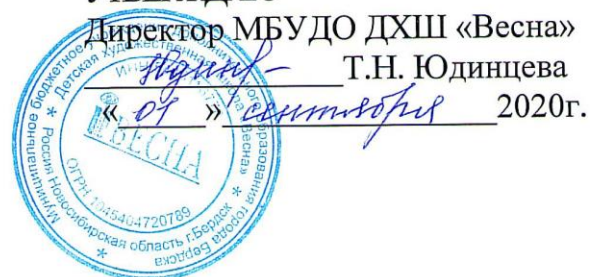 Директор МБУДО ДХШ «Весна»
Т.Н. Юдинцева
« 01 » сентября 2020г.
Муниципальное бюджетное образования города Бердска
Детская художественная школа «Весна»
ВЕСНА
ОГРН 1045404720789
Россия Новосибирская область г.Бердск